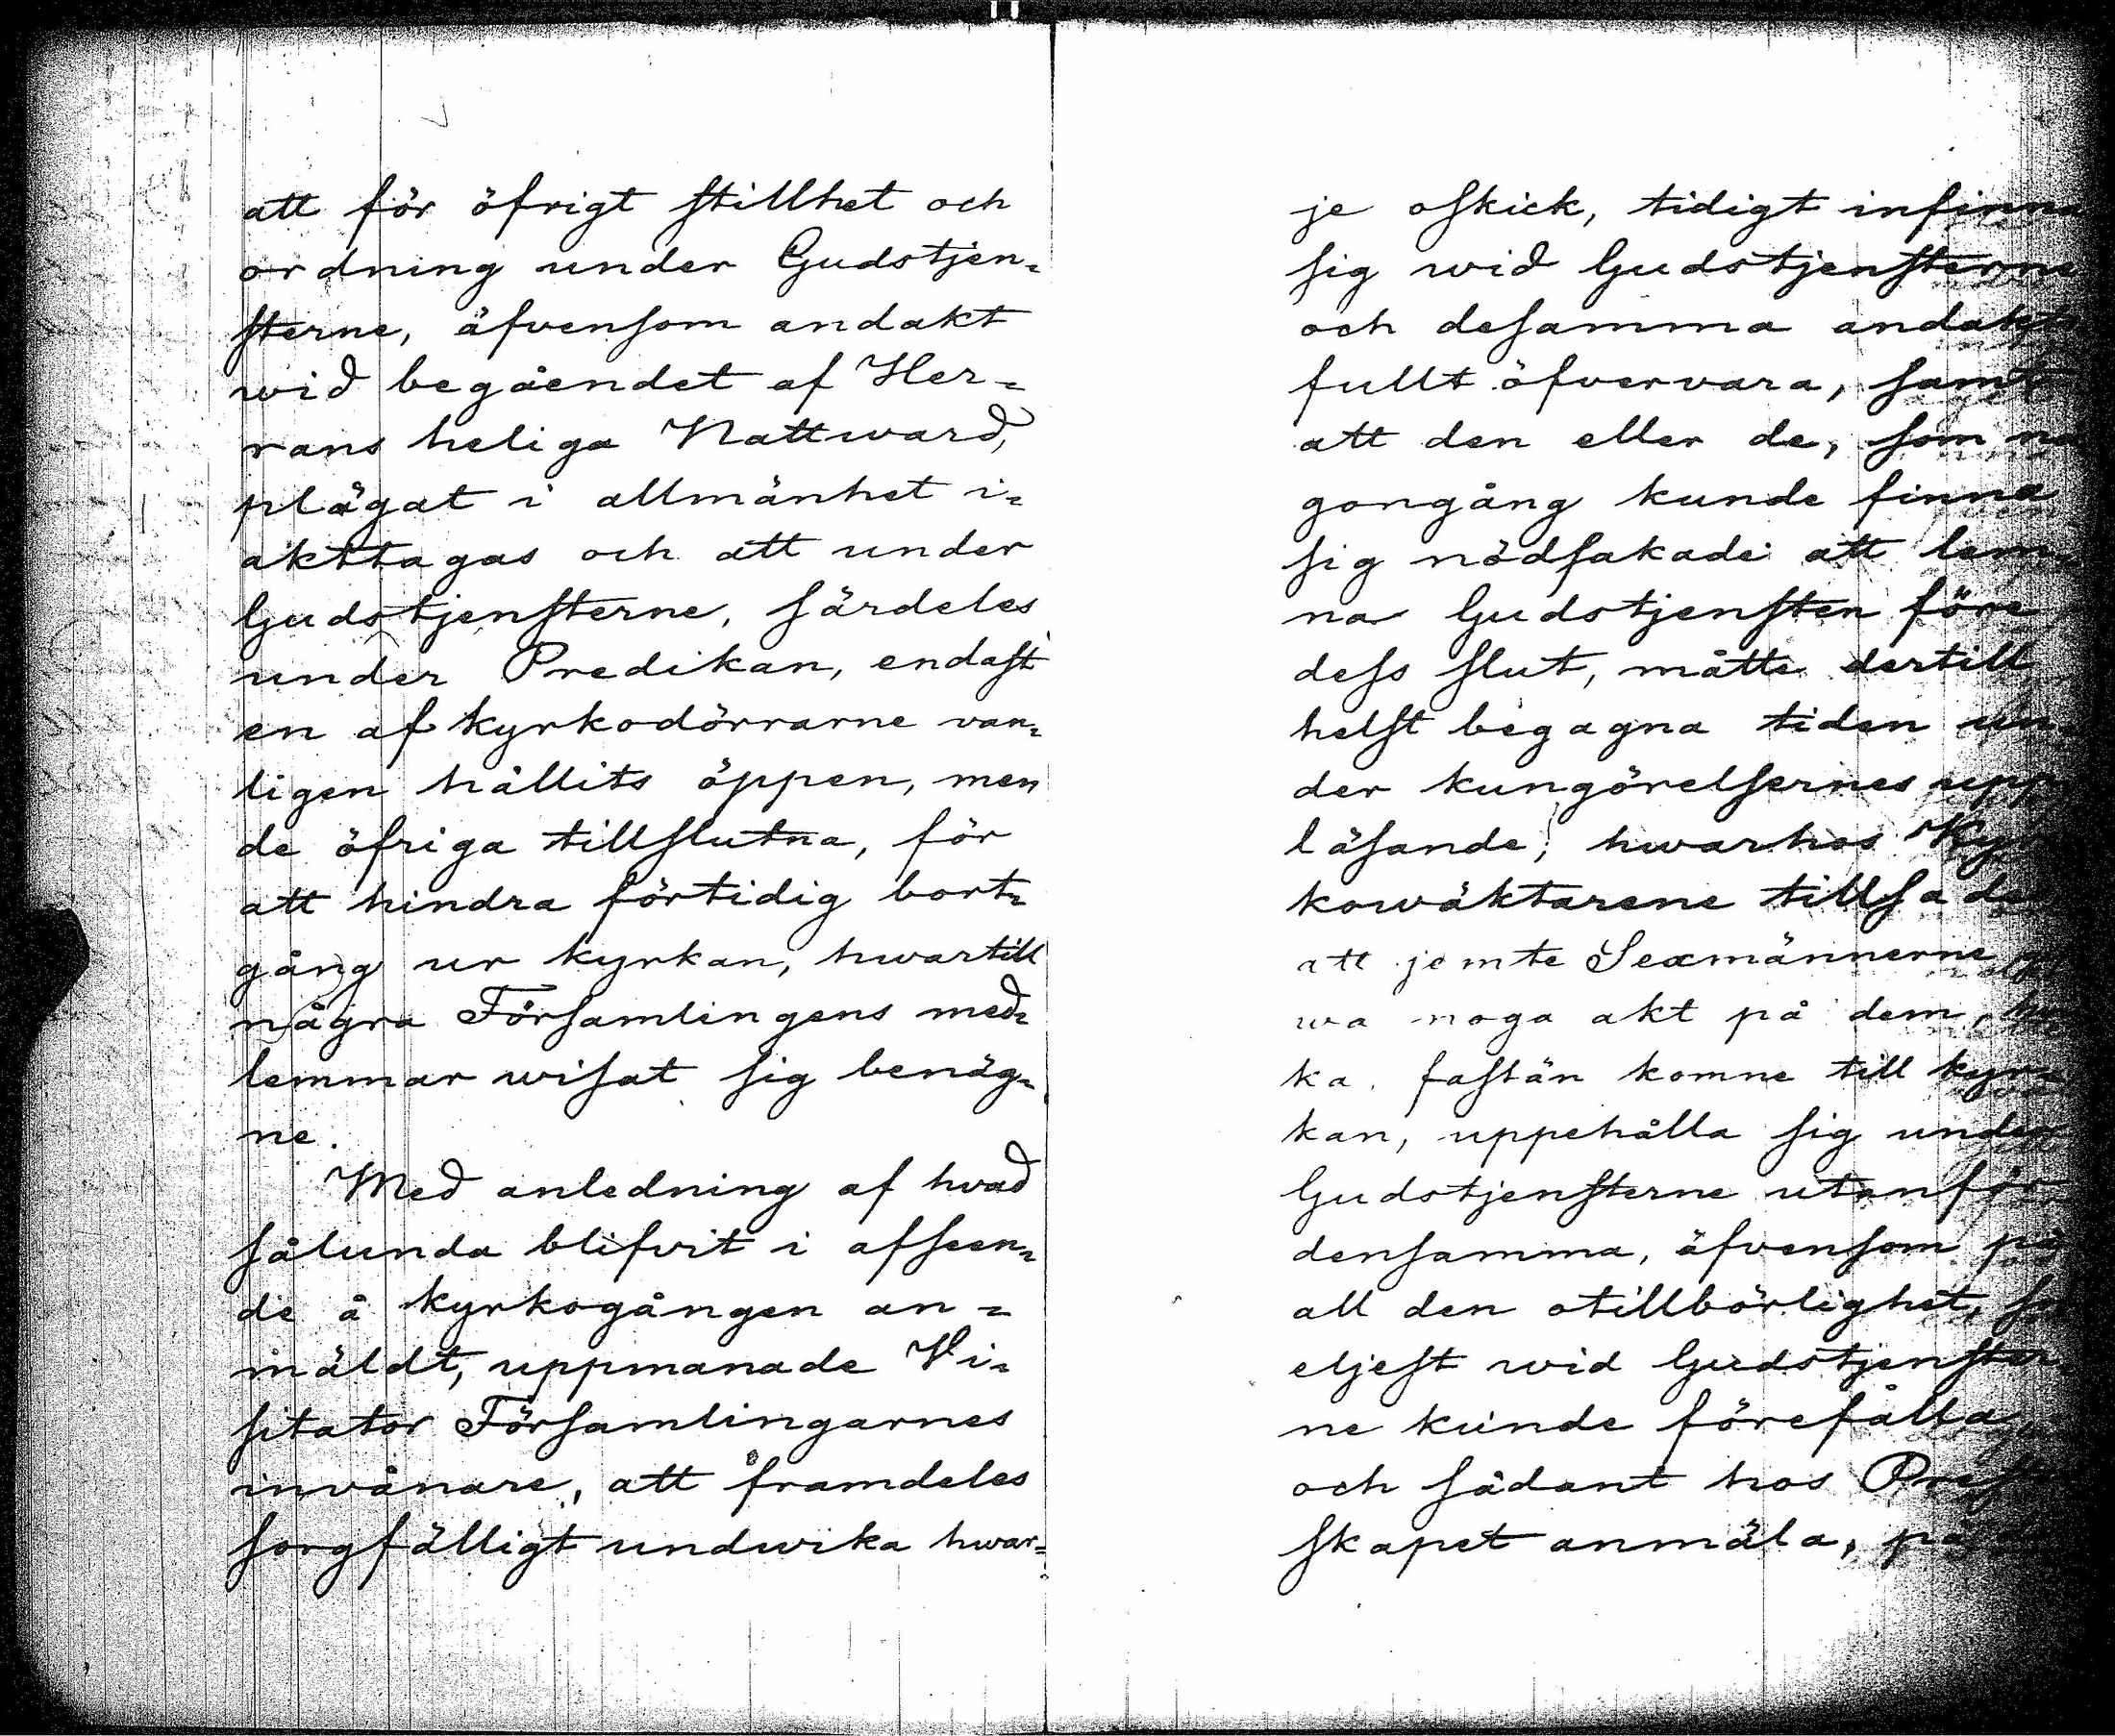 att för öfrigt stillhet och
ordning under Gudstjen=
sterne, äfvensom andakt
wid begåendet af Her=
rans heliga Nattward,
plägat i allmänhet i=
akttagas och att under
Gudstjensterne, särdeles
under Predikan, endast
en af kyrkodörrarne van=
ligen hållits öppen, men
de öfriga tillslutna, för
att hindra förtidig bort=
gång ur kyrkan, hwartill
några Församlingens med=
lemmar wisat sig benäg=
ne.
Med anledning af hvad
sålunda blifvit i afseen=
de å kyrkogången an=
mäldt, uppmanade Vi=
sitator Församlingarnes
invånare, att framdeles
sorgfälligt undwika hwar=
je oskick, tidigt infinna
sig wid Gudstjensterne
och desamma andakts
fullt öfvervara, samt
att den eller de, som nå
gongång kunde finna
sig nödsakade att lem=
na Gudstjensten före
dess slut, måtte dertill
helst begagna tiden un=
der kungörelsernes upp
läsande; hwarhos Kyr
kowäktarene tillsades
att jemte Sexmännerne
wa noga akt på dem,
ka, fastän komne till kyr=
kan, uppehålla sig under
Gudstjensterne utanför
densamma, äfvensom på
all den otillbörlighet,
eljest wid Gudstjenster=
ne kunde förefalla,
och sådant hos Preste
skapet anmäla, på